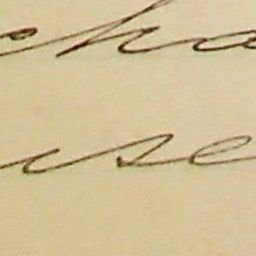 cha
use